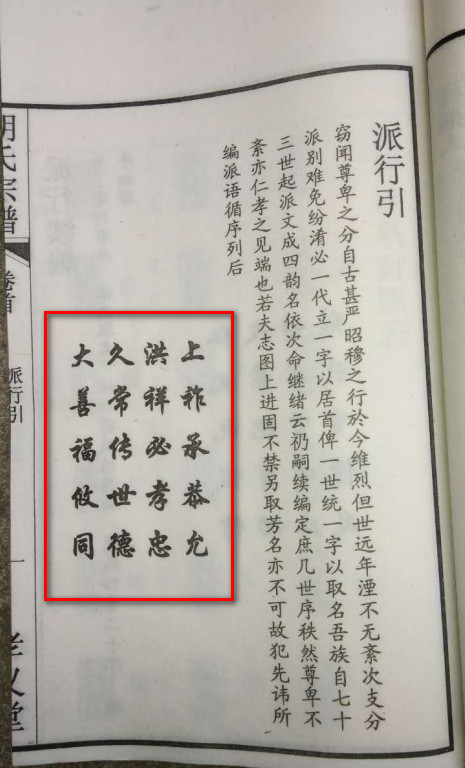 派行引
窃闻尊卑之分自古甚严昭穆之行於今维烈但世远年湮不无紊次支分
派别难免纷淆必一代立一字以居首俾一世统一字以取名吾族自七十
三世起派文成四韵名依次命继绪云礽嗣续编定庶几世序秩然尊卑不
紊亦仁孝之见端也若夫志图上进固不禁另取芳名亦不可故犯先讳所
编派语循序列后
上祚承恭允
洪祥必孝忠
久常传世德
大善福攸同
胡氏宗谱
卷首
派行引
一
孝义堂